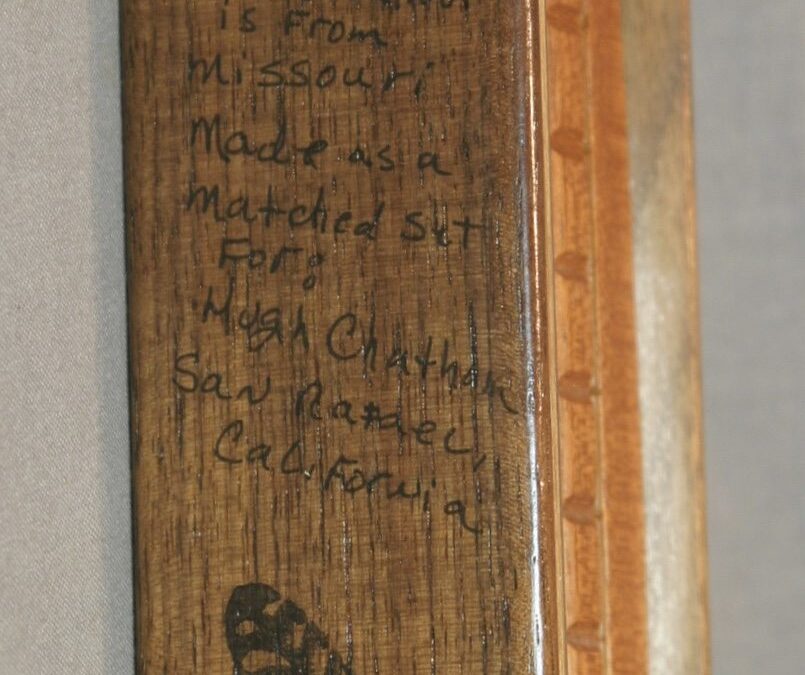 is From
Missouri
Made as a
Matched Set
For:
Hugh Chatham
San Rafael,
California